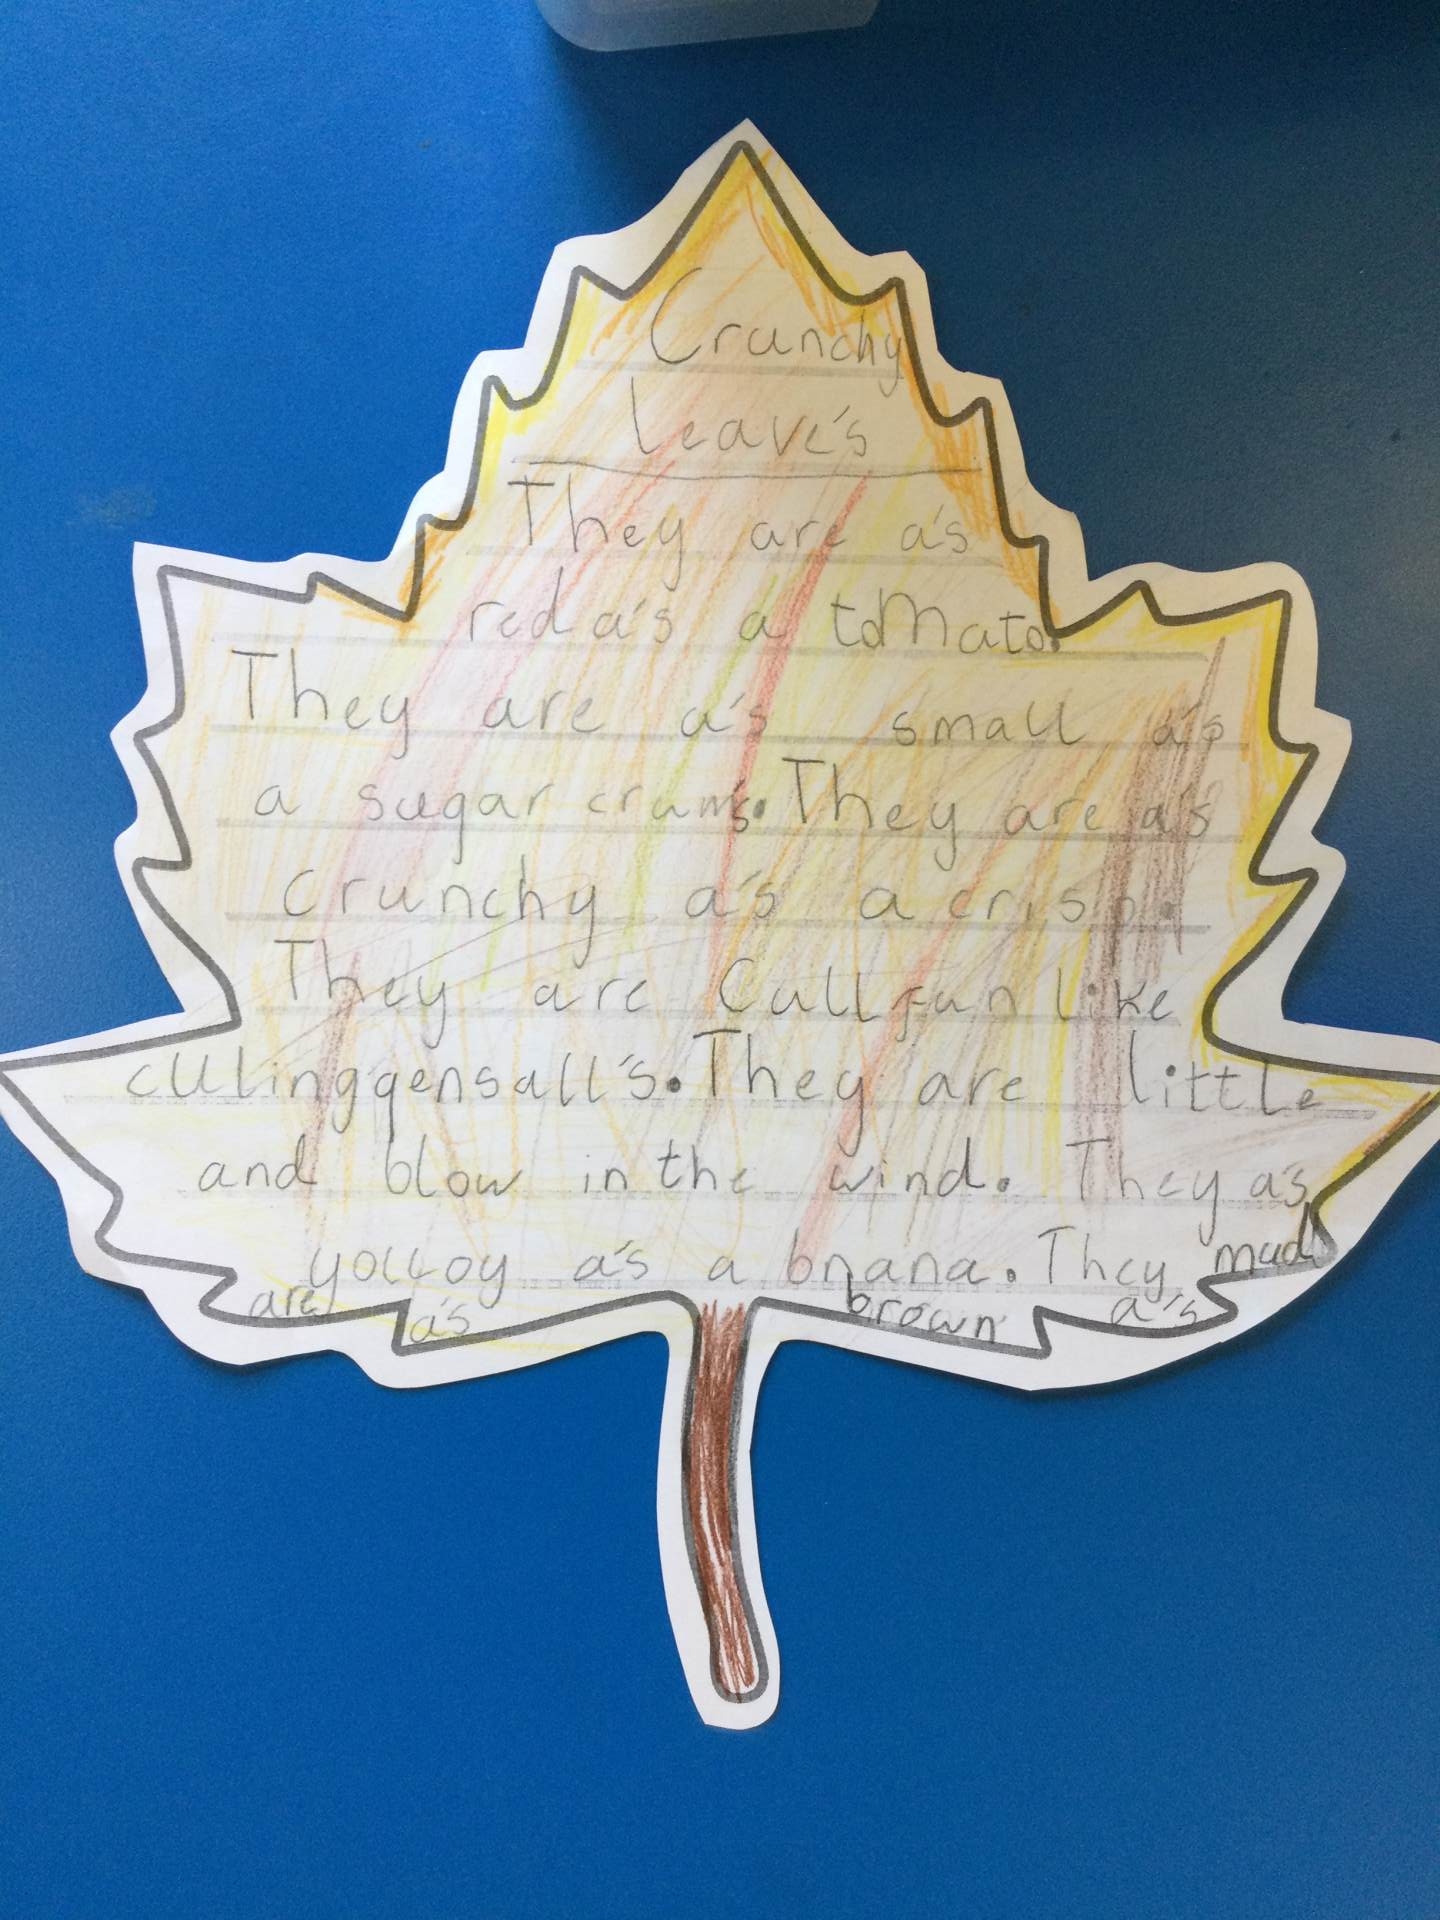 Crunchy
leave's
They are a's
red a's a tomato.
They are a's small a's
a sugar crum's. They are a's
crunchy a's a crisp.
They are Cullfun like
culinggensall's. They are little
and blow in the wind. They a's
yolloy a's a bnana. They mud
are a's brown a's